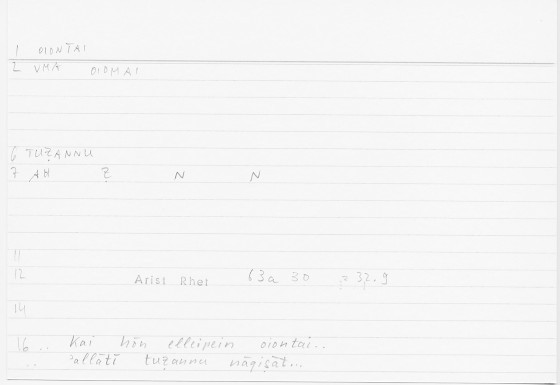 1 OIONTAI
2 VMA OIOMAI
6 TUẒANNU
7 AH Ẓ N N
11
12 Arist Rhet 63a 30 = 32.9
14
16 .. Kai hōn elleipein oiontai..
.. ʾallātī tuẓannu nāqiṣāt...